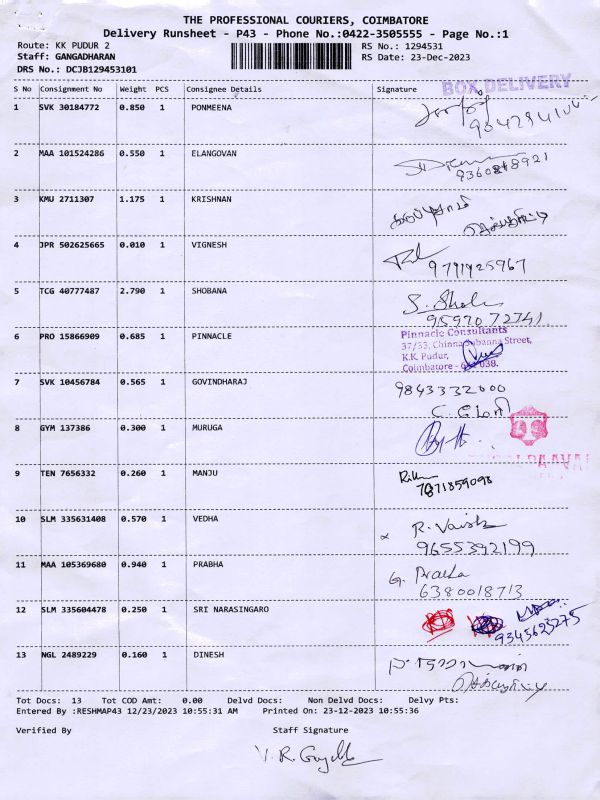 THE PROFESSIONAL COURIERS, COIMBATORE
Delivery Runsheet - P43 - Phone No.:0422-3505555 - Page No.:1
Route: KK PUDUR 2 RS No.: 1294531
Staff: GANGADHARAN RS Date: 23-Dec-2023
DRS No.: DCJB129453101
BOX DELIVERY
S No Consignment No Weight PCS Consignee Details Signature
1 SVK 30184772 0.850 1 PONMEENA
2 MAA 101524286 0.550 1 ELANGOVAN
9360848921
3 KMU 2711307 1.175 1 KRISHNAN
4 JPR 502625665 0.010 1 VIGNESH
9791925967
5 TCG 40777487 2.790 1 SHOBANA
9597072741
6 PRO 15866909 0.685 1 PINNACLE
Pinnacle Consultants
37/53, Chinna Subanna Street,
K.K. Pudur,
Coimbatore - 038.
7 SVK 10456784 0.565 1 GOVINDHARAJ
9843332000
8 GYM 137386 0.300 1 MURUGA
9 TEN 7656332 0.260 1 MANJU
7871859098
10 SLM 335631408 0.570 1 VEDHA
9655392199
11 MAA 105369680 0.940 1 PRABHA
6380018713
12 SLM 335604478 0.250 1 SRI NARASINGARO
9345625275
13 NGL 2489229 0.160 1 DINESH
Tot Docs: 13 Tot COD Amt: 0.00 Delvd Docs: Non Delvd Docs: Delvy Pts:
Entered By :RESHMAP43 12/23/2023 10:55:31 AM Printed On: 23-12-2023 10:55:36
Verified By Staff Signature